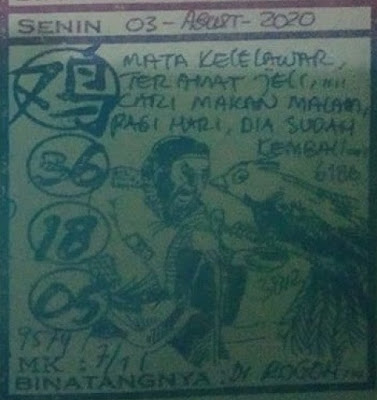 SENIN 03 - AGUST - 2020
鸡
MATA KELELAWAR,
TERAMAT JELI,....
CARI MAKAN MALAM,
PAGI HARI, DIA SUDAH
KEMBALI...
36
6186
18
05
9579
MK : 7/11
BINATANGNYA : DI